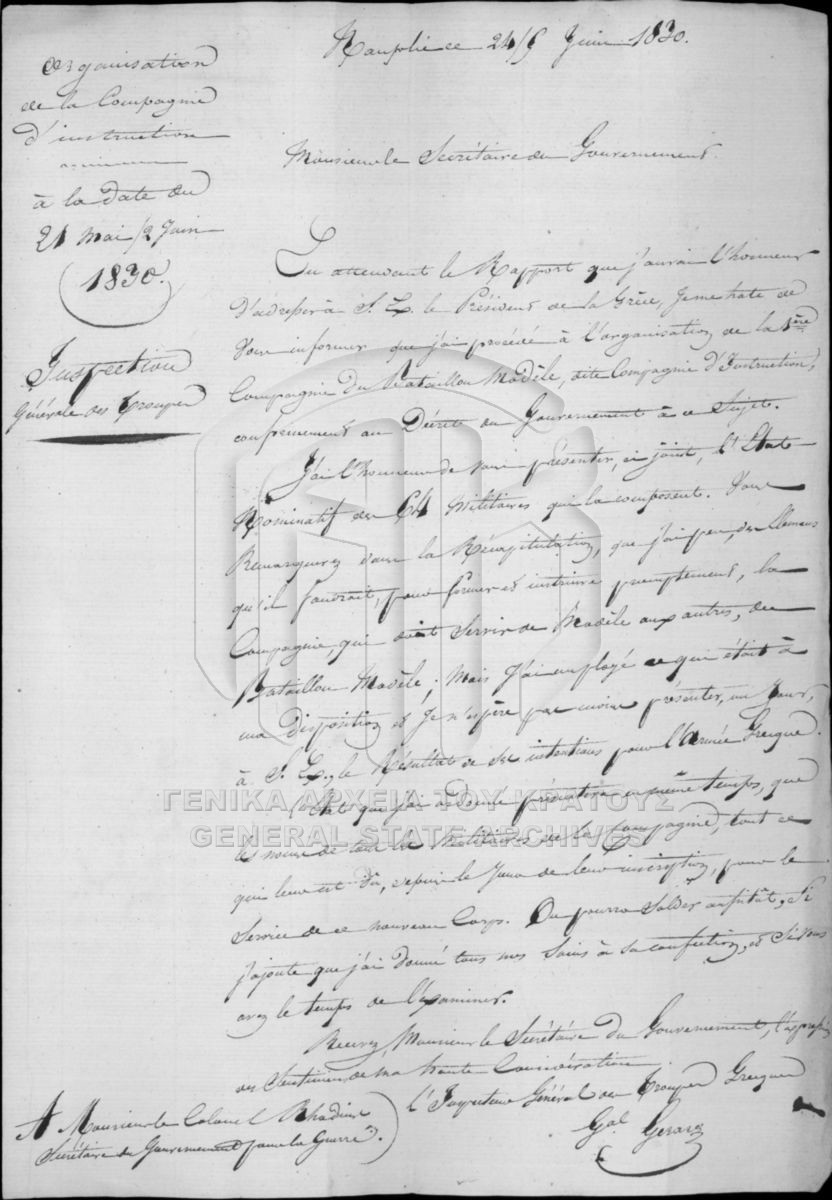 Nauplie ce 24/5 Juin 1830.
Organisation
de la Compagnie
d'instruction
à la date du
21 mai/2 Juin
1830.
Inspection
Générale des Troupes
Monsieur le Secrétaire du Gouvernement.
En attendant le Rapport que j'aurai l'honneur
d'adresser à S. E. le Président de la Grèce, Je me hate de
vous informer que j'ai procédé à l'organisation de la 1ère
Compagnie du Bataillon Modèle, dite Compagnie d'Instruction,
conformément au Décret du Gouvernement à ce Sujet.
J'ai l'honneur de vous présenter, ci joint, l'Etat
Nominatif des 64 Militaires qui la composent. Vous
Remarquerez dans la Récapitulation, que j'ai peu des Elemens
qu'il faudrait, pour former et instruire promptement, la
Compagnie, qui doit Servir de Modèle aux autres, du
Bataillon Modèle; Mais j'ai employé ce qui était à
ma disposition et Je n'espère pas moins présenter, un Jour,
à S. E., le Résultat de ses intentions pour l'Armée Grecque.
L'Etat que j'ai adonné présentera en même temps, que
les noms de tous les Militaires de la Compagnie, tout ce
qui leur est dû, depuis le Jour de leur inscription, pour le
Service de ce nouveau Corps. On pourra Solder aussitôt, Si
j'ajoute que j'ai donné tous mes Soins à sa confection, et Si vous
avez le temps de l'examiner.
Recevez, Monsieur le Secrétaire du Gouvernement, l'expression
des Sentimens de ma haute Considération
l'Inspecteur Général des Troupes Grecques
Gal Gerard
A Monsieur le Colonel Rhodius
Secrétaire du Gouvernement pour la Guerre.
ΓΕΝΙΚΑ ΑΡΧΕΙΑ ΤΟΥ ΚΡΑΤΟΥΣ
GENERAL STATE ARCHIVES